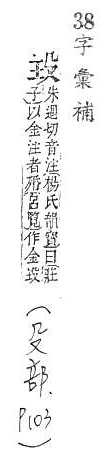 38字彙補
殶
朱遇切音注楊氏韻寶曰莊
子以金注者殙呂覽作金殶
(殳部, P103)